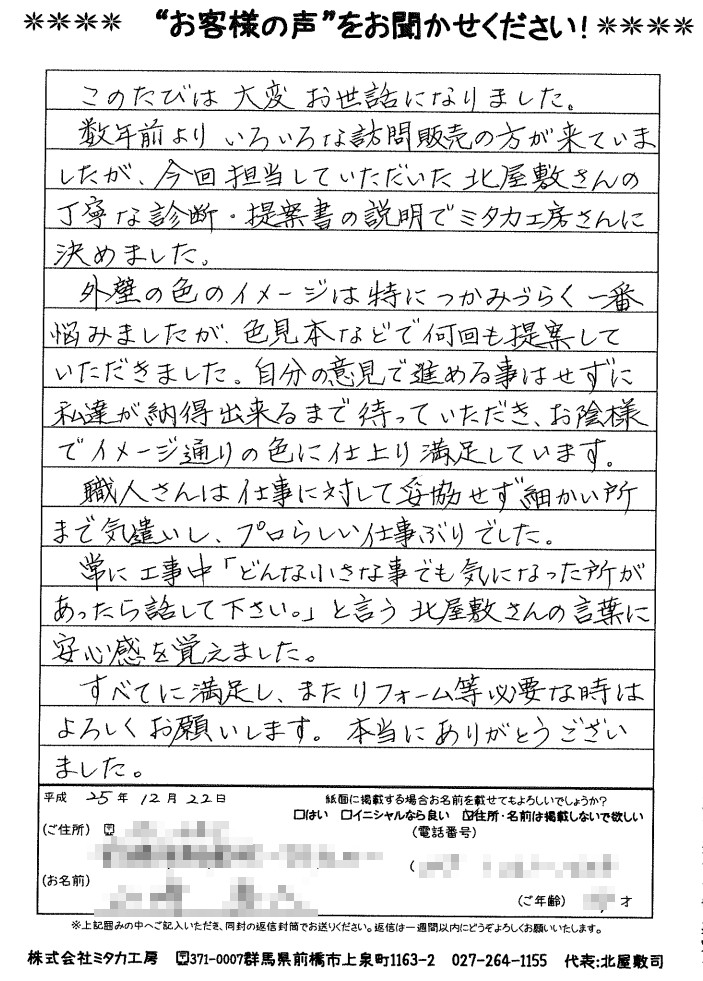 **** “お客様の声”をお聞かせください! ****
このたびは大変お世話になりました。
数年前よりいろいろな訪問販売の方が来ていま
したが、今回担当していただいた北屋敷さんの
丁寧な診断・提案書の説明でミタカ工房さんに
決めました。
外壁の色のイメージは特につかみづらく一番
悩みましたが、色見本などで何回も提案して
いただきました。自分の意見で進める事はせずに
私達が納得出来るまで待っていただき、お陰様
でイメージ通りの色に仕上り満足しています。
職人さんは仕事に対して妥協せず細かい所
まで気遣いし、プロらしい仕事ぶりでした。
常に工事中「どんな小さな事でも気になった所が
あったら話して下さい。」と言う北屋敷さんの言葉に
安心感を覚えました。
すべてに満足し、またリフォーム等必要な時は
よろしくお願いします。本当にありがとうござい
ました。
平成 25年 12月 22日
紙面に掲載する場合お名前を載せてもよろしいでしょうか?
□はい □イニシャルなら良い ☑住所・名前は掲載しないで欲しい
(ご住所) 〒
(電話番号)
(
(お名前)
(ご年齢) 才
※上記囲みの中へご記入いただき、同封の返信封筒でお送りください。返信は一週間以内にどうぞよろしくお願いいたします。
株式会社ミタカ工房 〒371-0007群馬県前橋市上泉町1163-2 027-264-1155 代表:北屋敷司